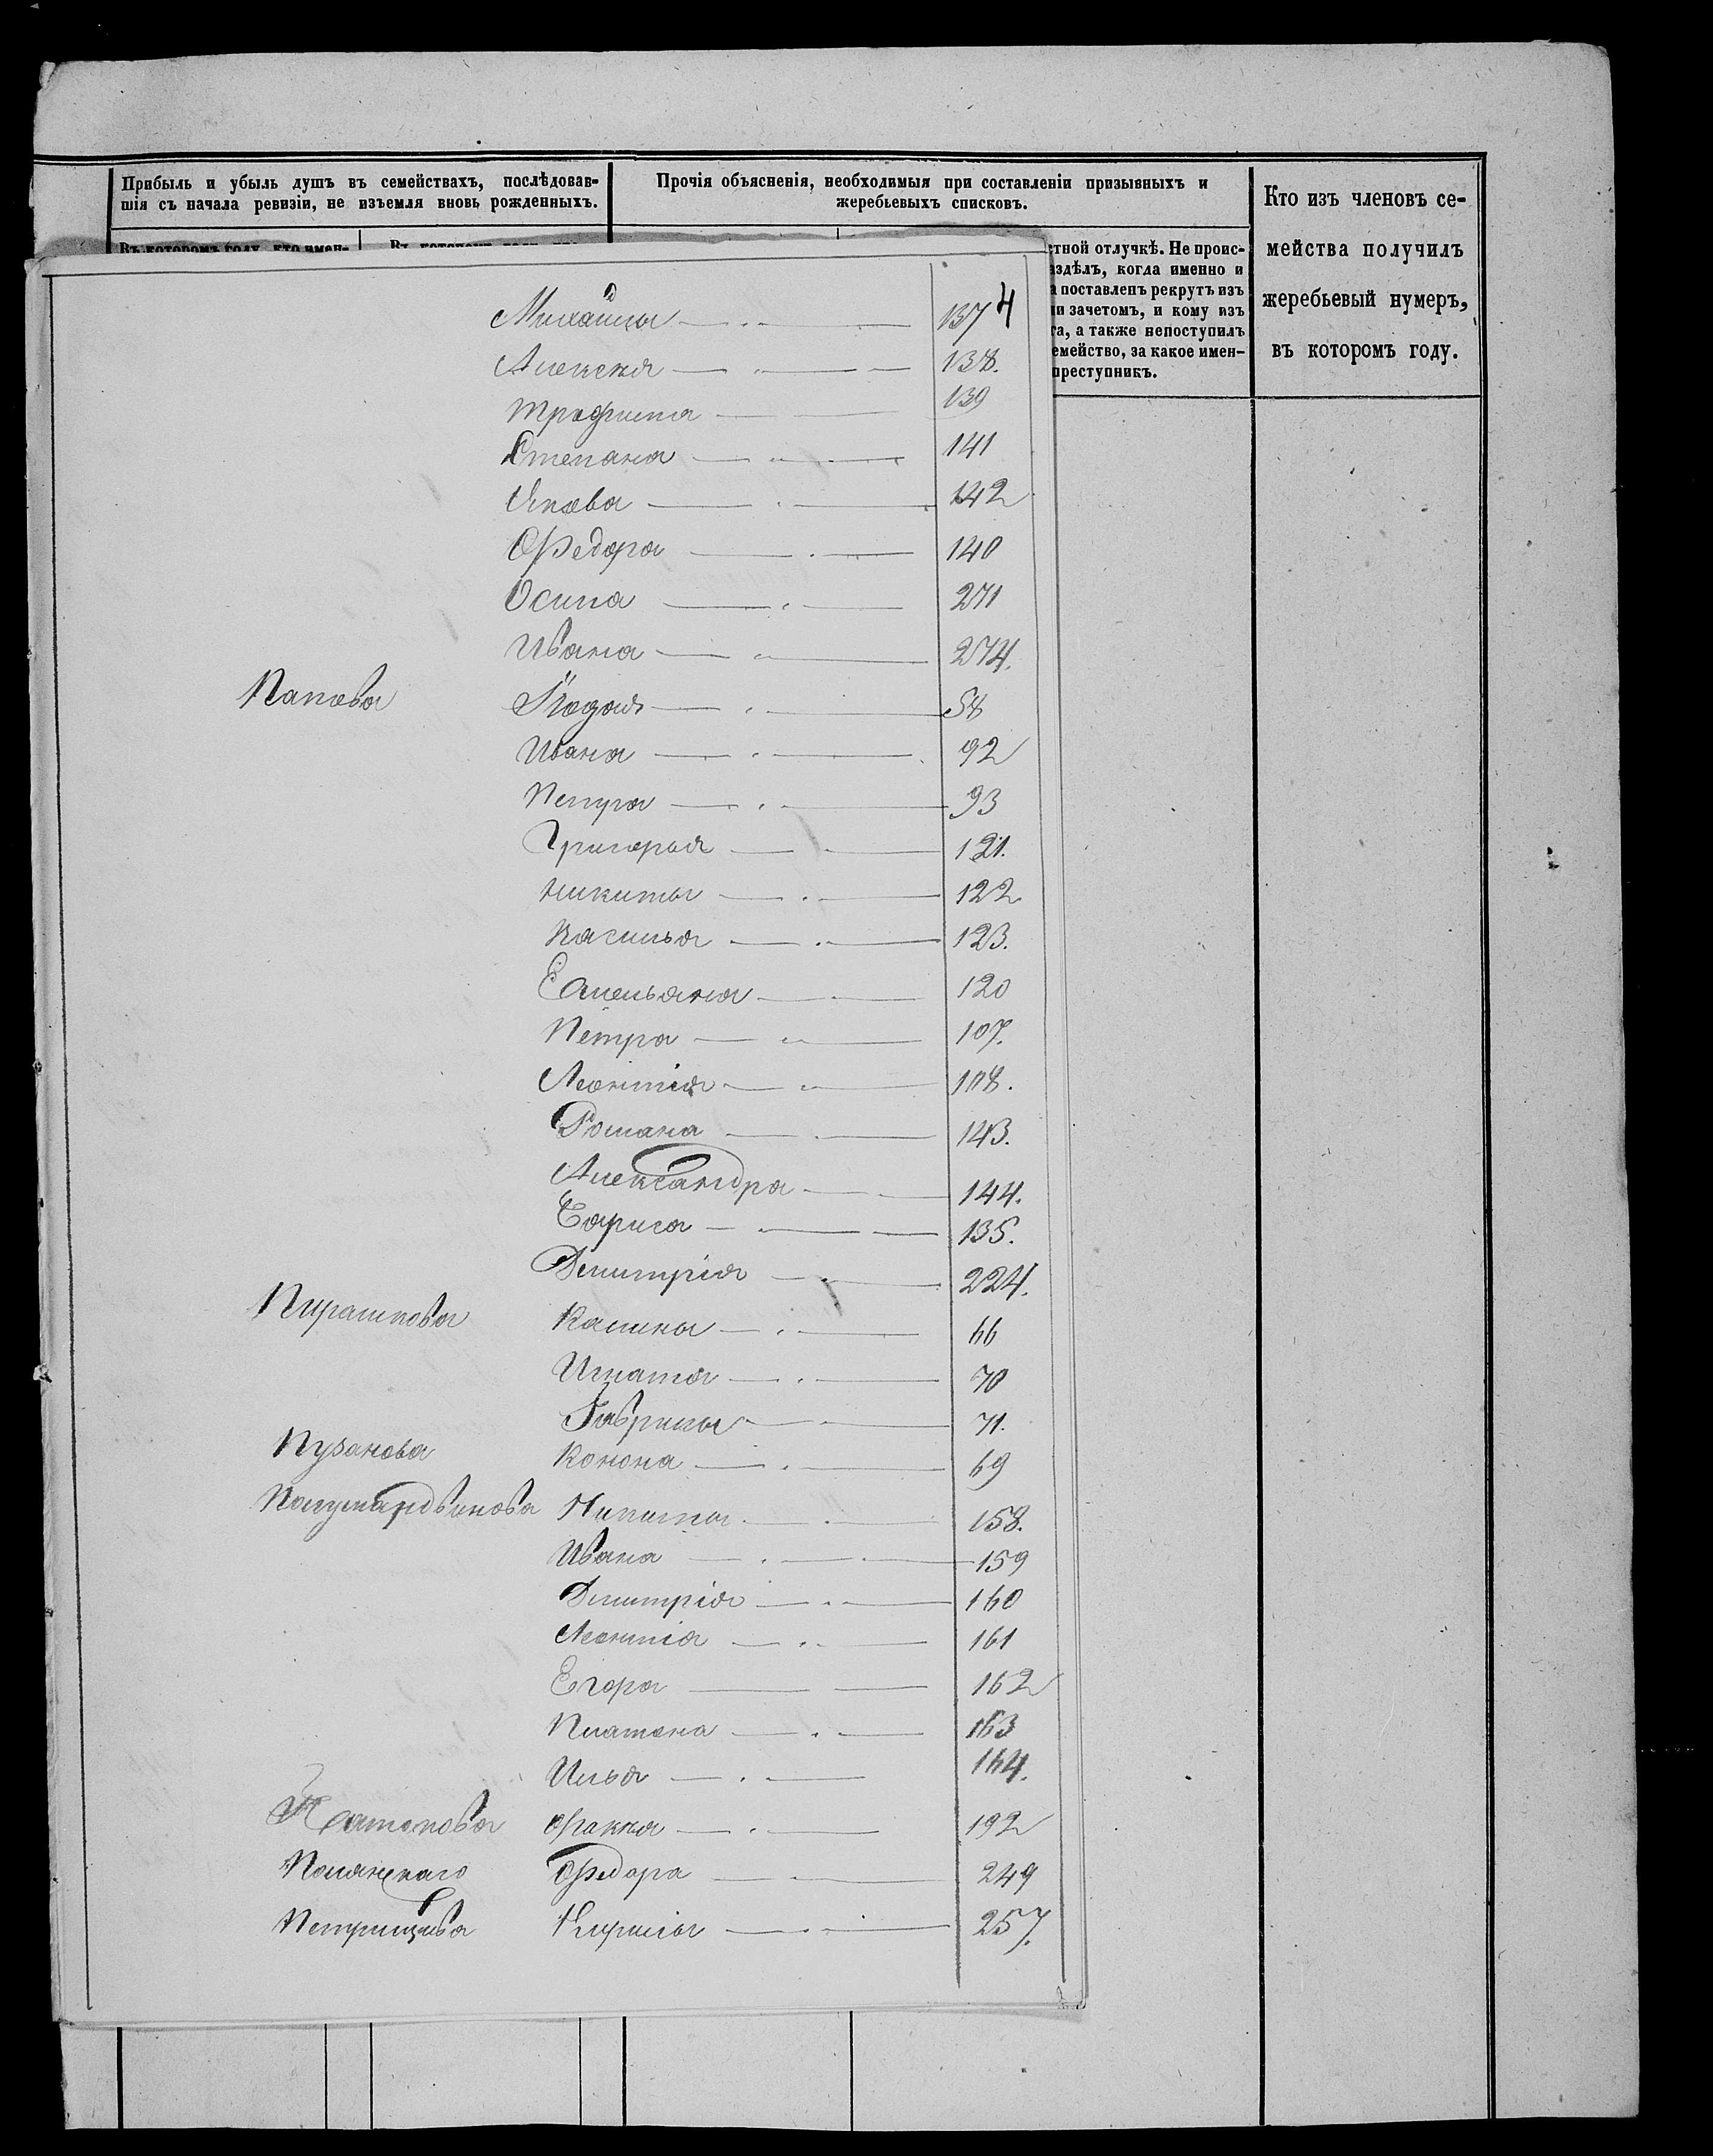 Прибыль и убыль душъ въ семействахъ, послѣдовав-
шія съ начала ревизіи, не изъемля вновь рожденныхъ.
Прочія объясненія, необходимыя при составленіи призывныхъ и
жеребьевыхъ списковъ.
Кто изъ членовъ се-
мейства получилъ
жеребьевый нумеръ,
въ которомъ году.
Въ которомъ году, кто имен-
тной отлучкѣ. Не проис-
здѣлъ, когда именно и
а поставленъ рекрутъ изъ
и зачетомъ, и кому изъ
та, а также непоступилъ
емейство, за какое имен-
преступникъ.
4
Михайлы 137
Алексея 138.
Трофима 139
Степана 141
Якова 142
Федора 140
Осипа 271
Ивана 274.
Попова 58
Ивана 92
Петра 93
Григорья 121.
Никиты 122
Василья 123.
Емельяна 120
Петра 107.
Леонтія 108.
Романа 143.
Александра 144.
Бориса 135.
Дмитрія 224.
Пирашкова Калины 66
Игната 70
Гаврилы 71.
Пузанова Конона 69
Никиты 158.
Ивана 159
Дмитрія 160
Леонтія 161
Егора 162
Платона 163
Илья 164.
192
Полянскаго Федора 249
Петрищева Кирилы 257.